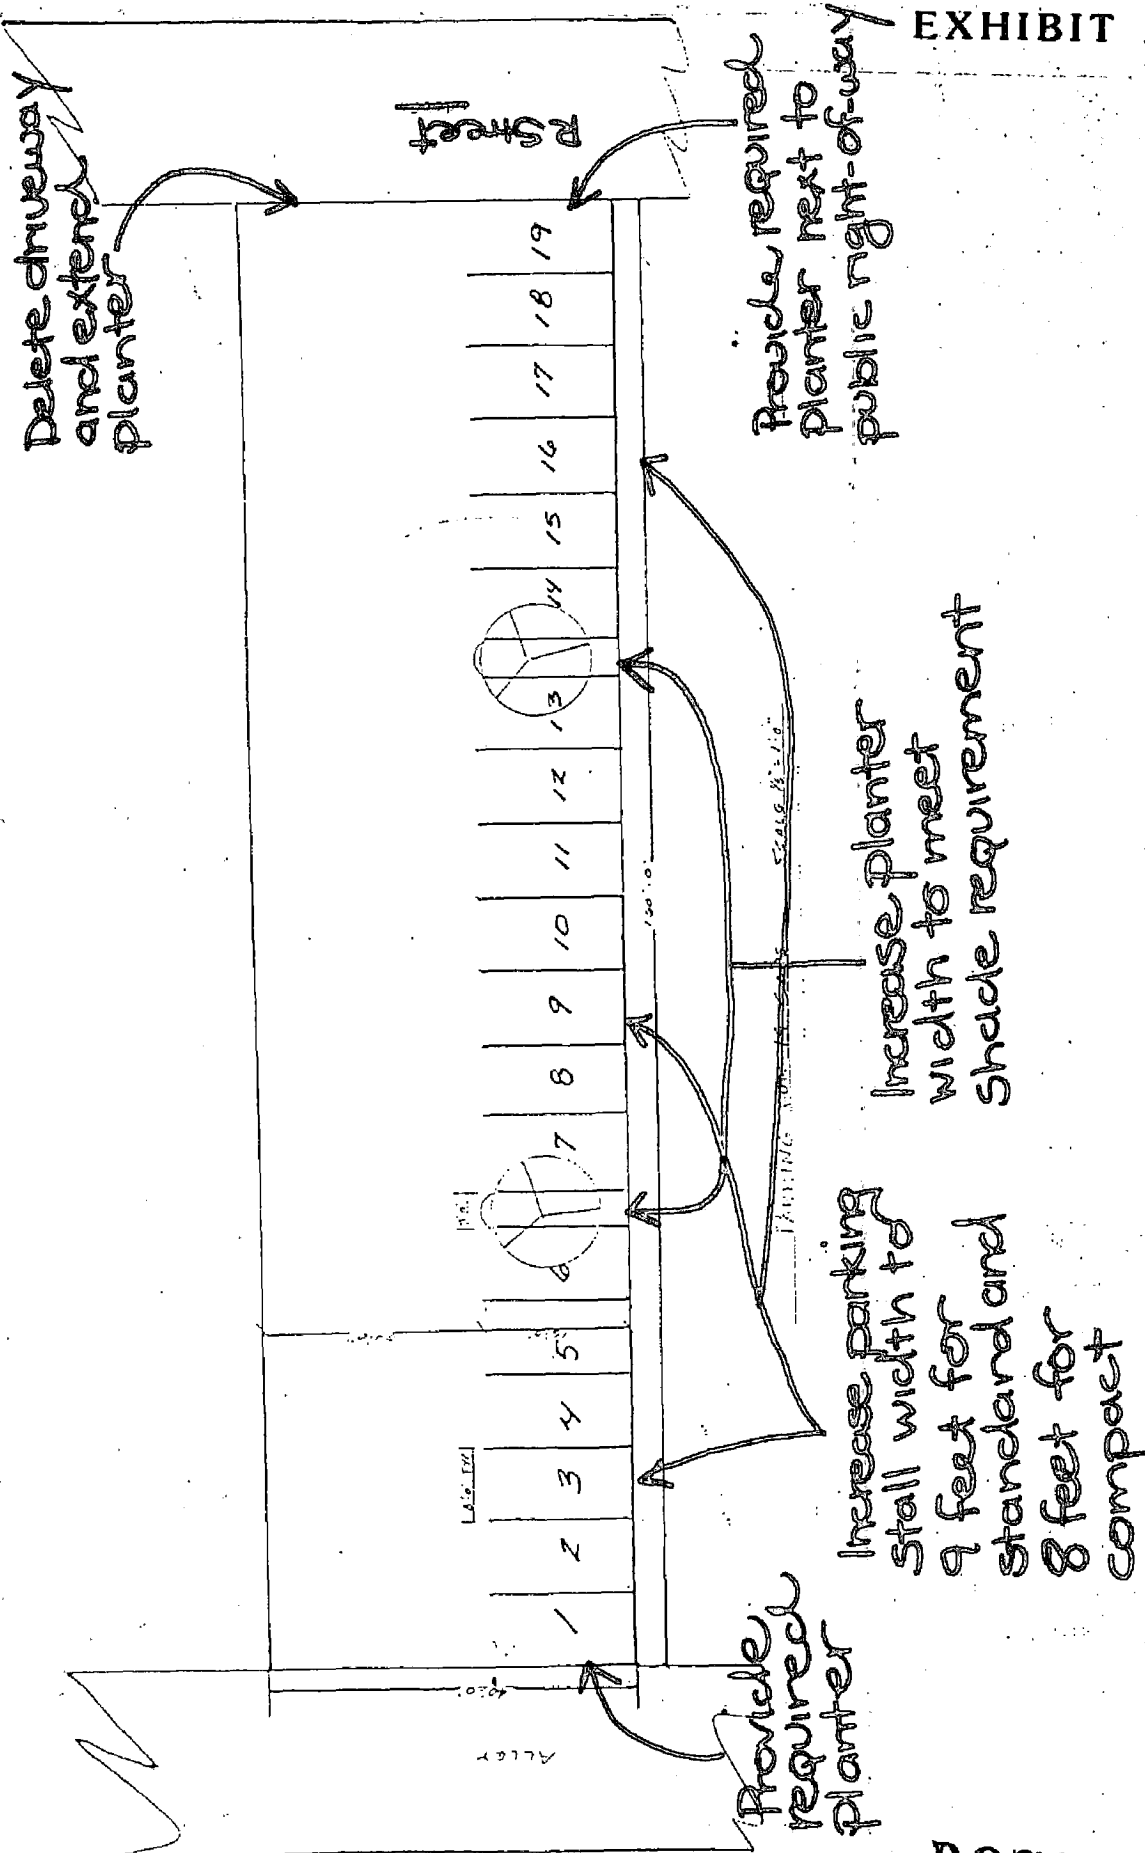 EXHIBIT
Delete driveway
and extend
planter
R Street
Provide required
planter next to
public right-of-way
1 2 3 4 5 6 7 8 9 10 11 12 13 14 15 16 17 18 19
160'.0"
40'.0"
ALLEY
PARKING
SCALE 1/8" = 1'.0"
Increase planter
width to meet
shade requirement
Increase parking
stall width to
9 feet for
standard and
8 feet for
compact
Provide
required
planter